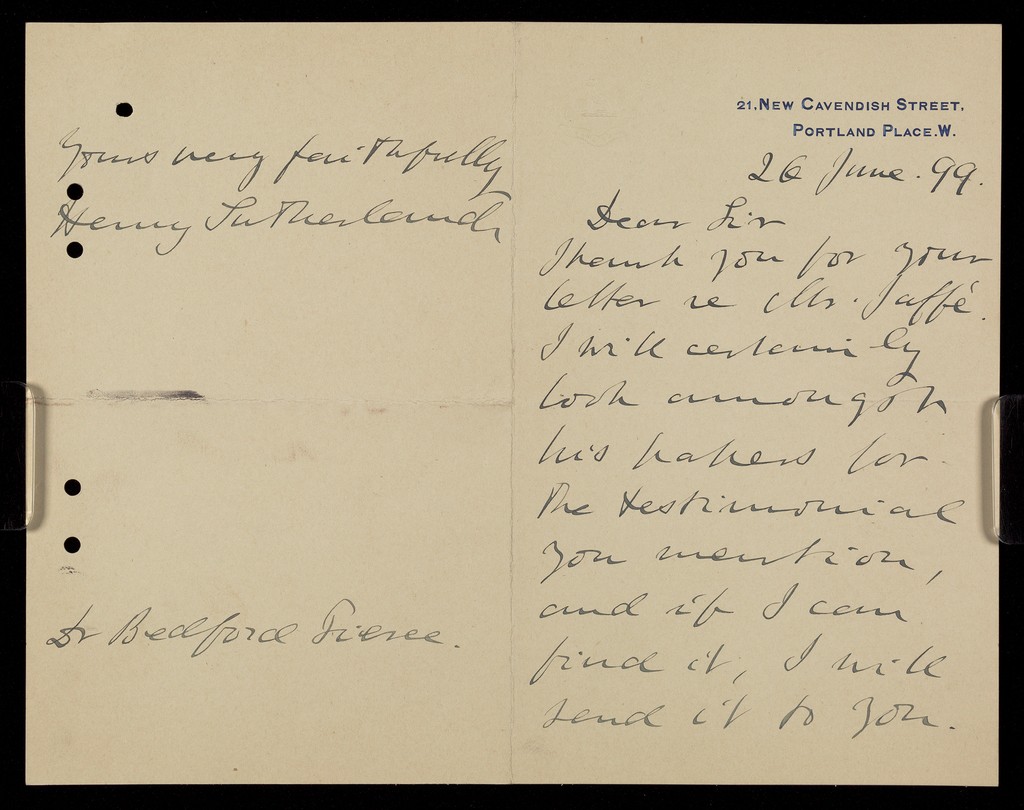 21, NEW CAVENDISH STREET,
PORTLAND PLACE. W.
26 June. 99.
Dear Sir
Thank you for your
letter re Mr. Jaffé.
I will certainly
look amongst
his papers for
the testimonial
you mention,
and if I can
find it, I will
send it to you.
Yours very faithfully
Henry Sutherland
Dr Bedford Pierce.